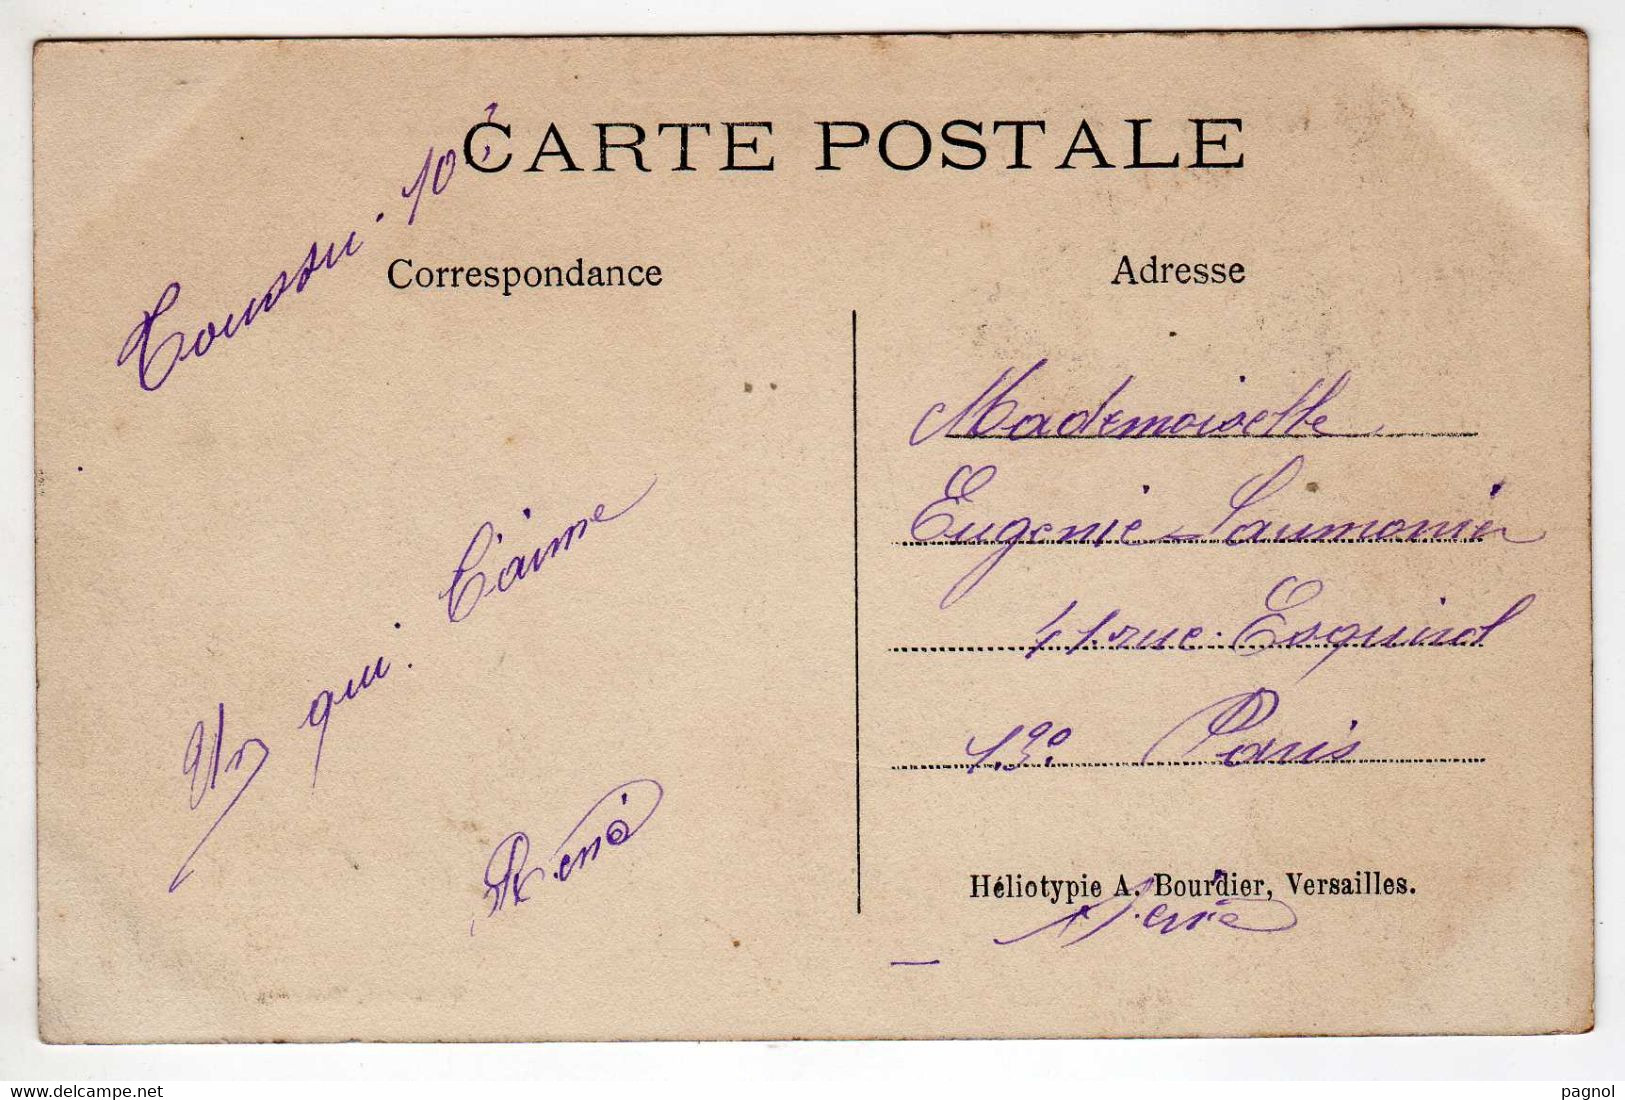 CARTE POSTALE
Correspondance
Toussu. 10
Un qui. t'aime
René
Adresse
Mademoiselle
Eugenie Saumonier
41. rue. Esquirol
13e. Paris
Héliotypie A. Bourdier, Versailles.
delcampe.net
pagnol